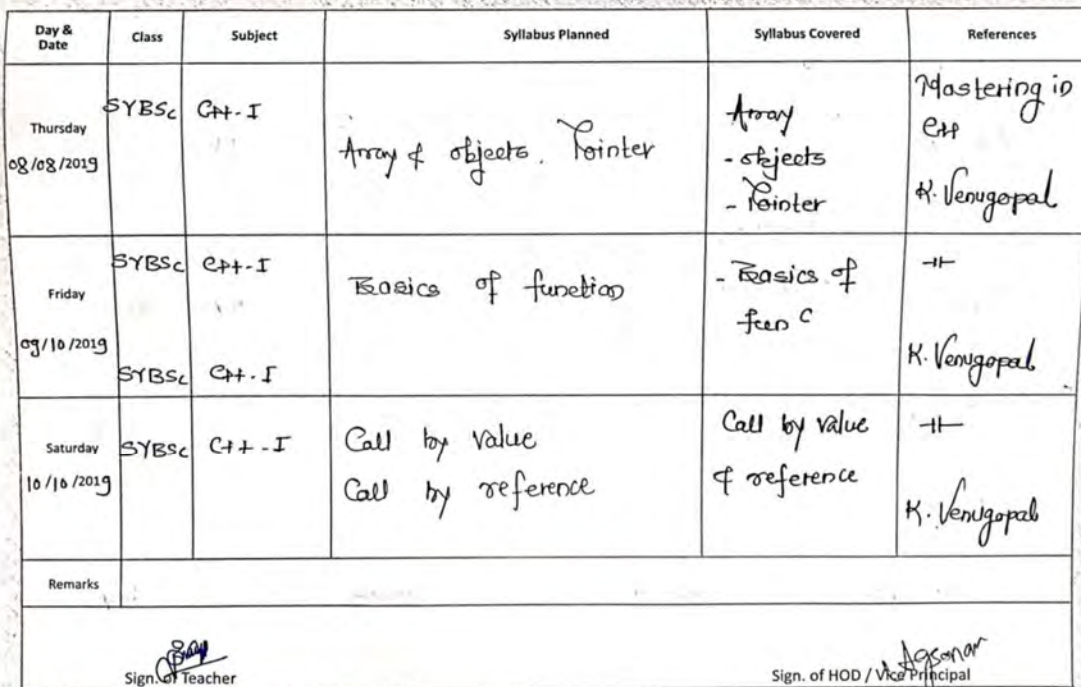 Day & Date Class Subject Syllabus Planned Syllabus Covered References
Thursday
08/08/2019
SYBSc C++-I
Array & objects. Pointer
Array
- objects
- Pointer
Mastering in
C++
K. Venugopal
Friday
09/10/2019
SYBSc C++-I
SYBSc C++-I
Basics of function
- Basics of
funᶜ
-||-
K. Venugopal
Saturday
10/10/2019
SYBSc C++-I
Call by value
Call by reference
Call by value
& reference
-||-
K. Venugopal
Remarks
Sign. of Teacher
Sign. of HOD / Vice Principal